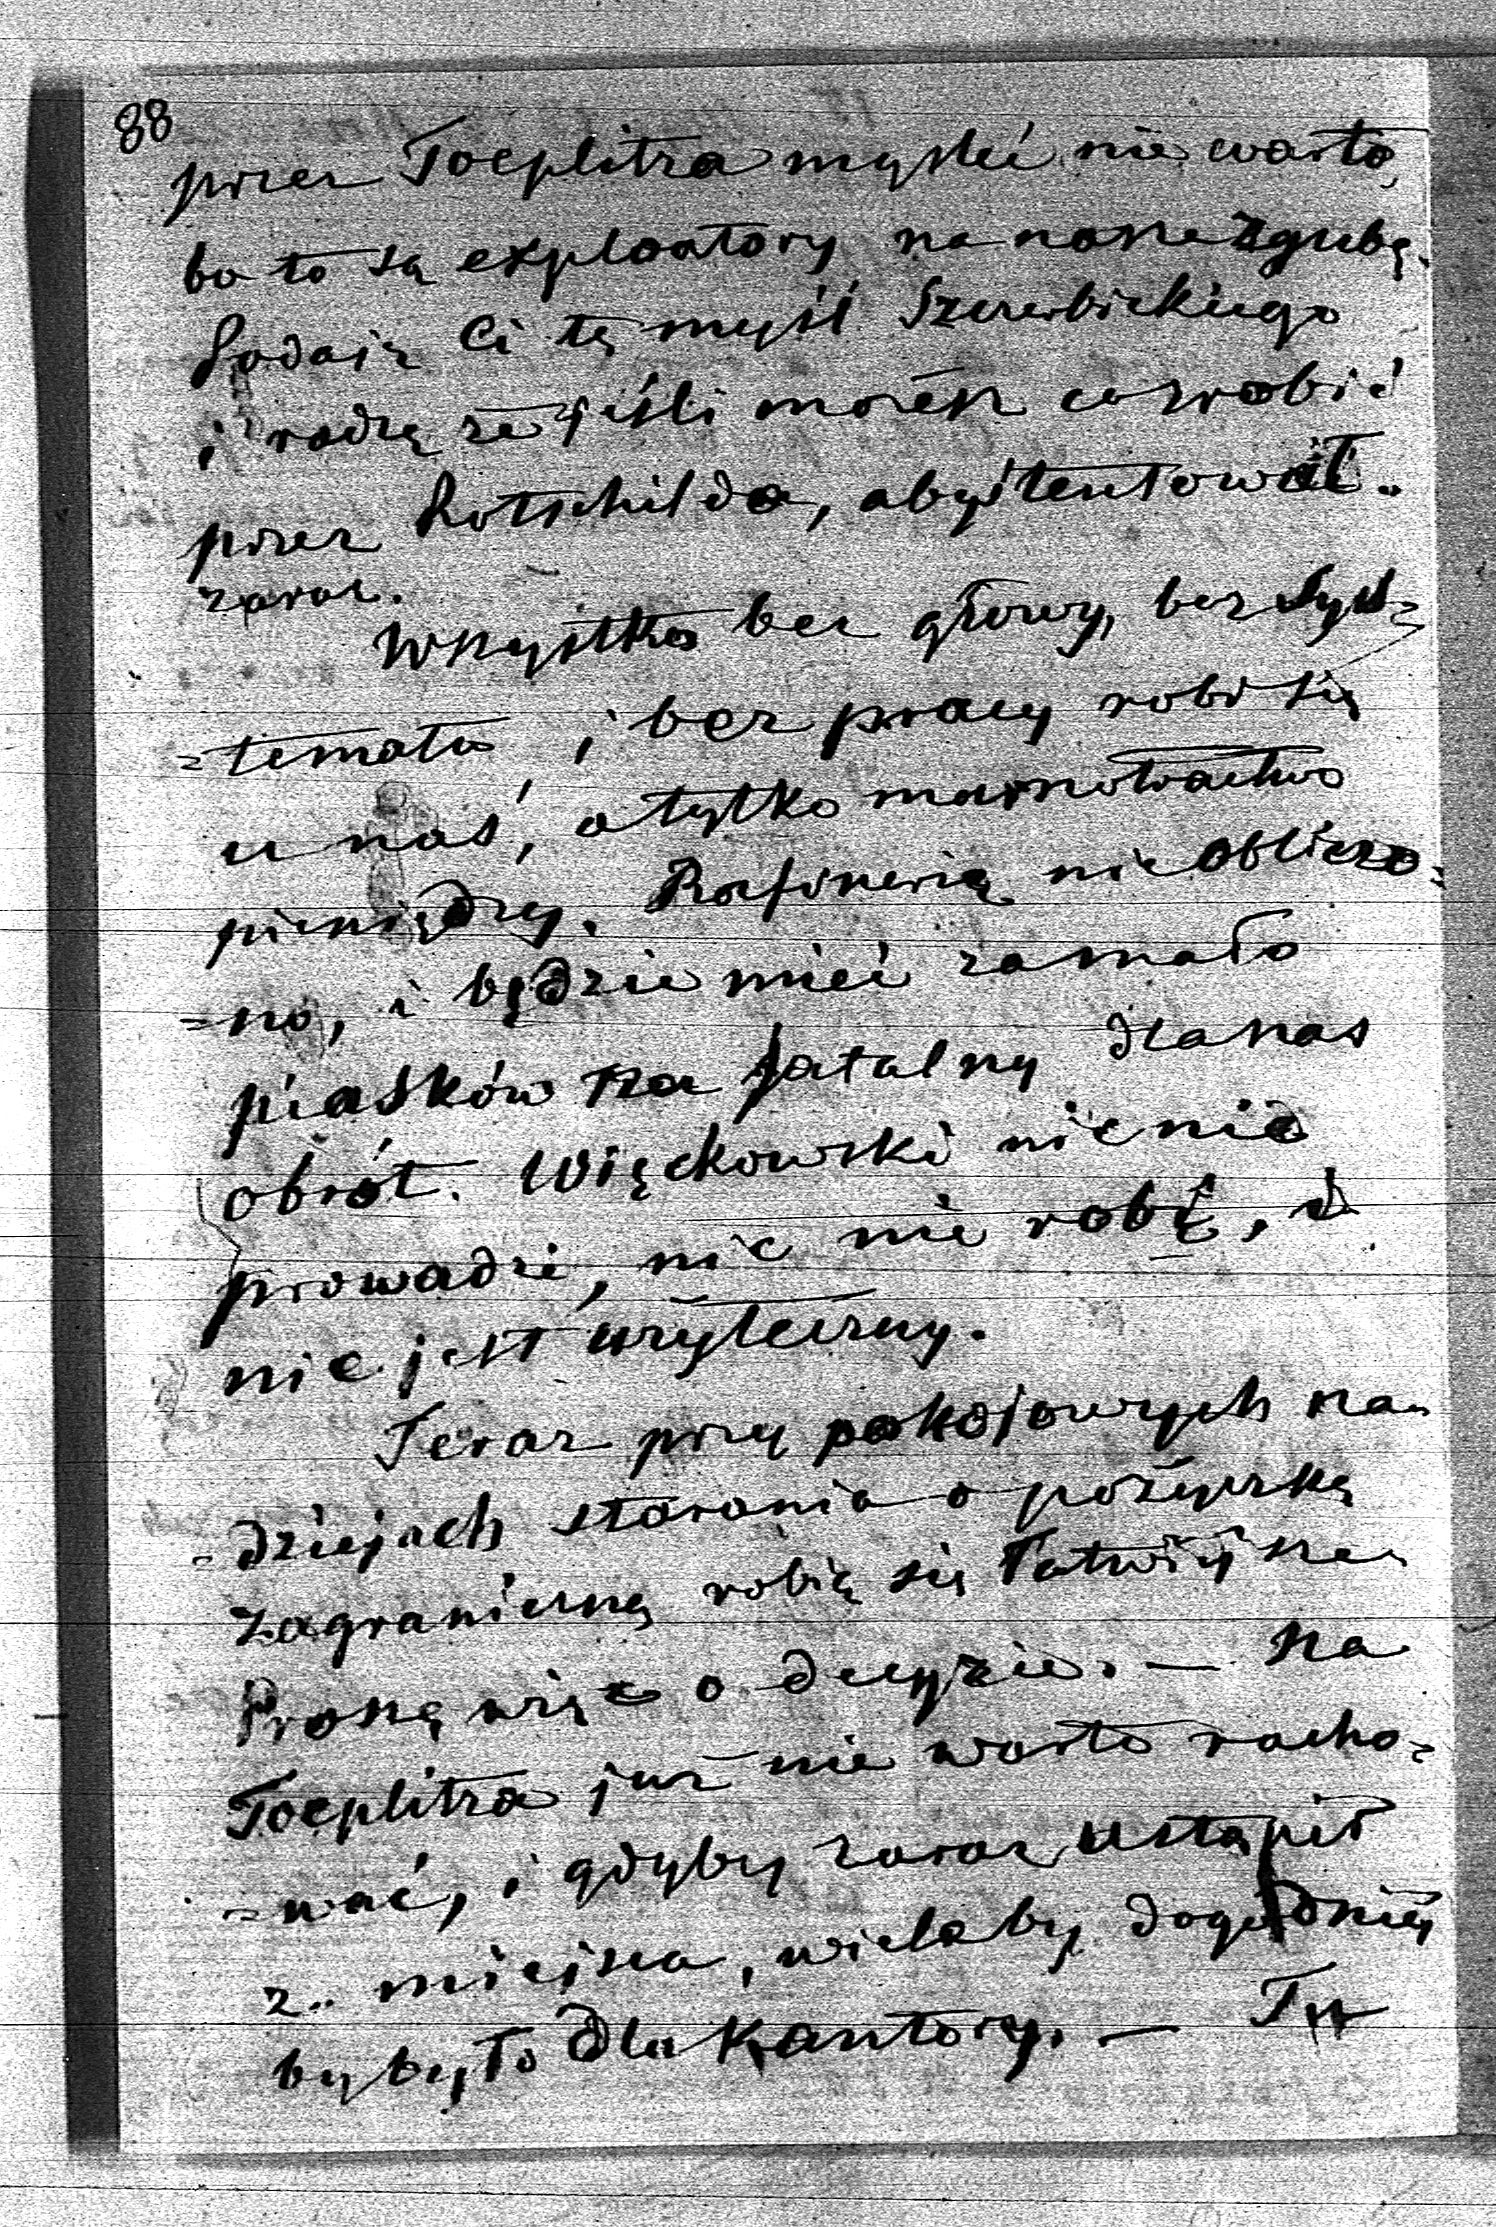 88
przez Toeplitza myśleć nie warto,
bo to są exploatory na nasze zgubę.
Podaję Ci tę myśl Szczerbickiego
i radzę że jeśli możesz co zrobić
przez Rotschilda, abyś tentował
zaraz.
Wszystko bez głowy, bez sys=
=tematu i bez pracy robi się
u nas, a tylko marnotractwo
pieniędzy. Rafinerią nie obliczo=
=no, i będzie mieć zamało
piasków na fatalny dla nas
obrót. Więckowski nic nie
prowadzi, nic nie robi, i
nie jest użyteczny.
Teraz przy pokojowych na=
=dziejach starania o pożyczkę
zagraniczną robią się łatwiejsze.
Proszę więc o decyzie. — Na
Toeplitza już nie warto racho=
=wać, i gdyby zaraz ustąpił
z miejsca, wieleby dogodniej
by było dla Kantory. — Ty